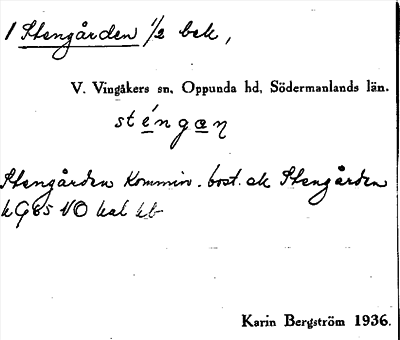 1 Stengården 1/2 bek,
V. Vingåkers sn. Oppunda hd. Södermanlands län.
sténgɑn
Stengården Kommin. bost. ek Stengården
kG85 NO kal kb
Karin Bergström 1936.